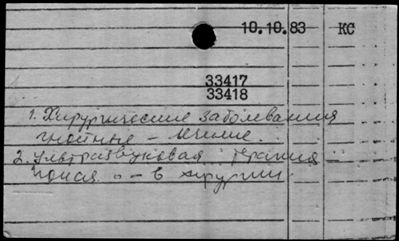 10.10.83 КС
33417
33418
1. Хирургические заболевания
гнойные – лечение.
2. Ультразвуковая терапия –
– в хирургии.